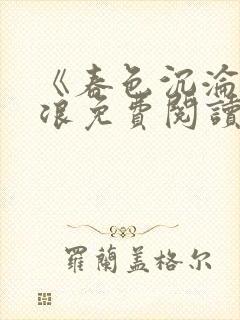 《春色沉淪
浪免費閱讀
羅蘭蓋格尔